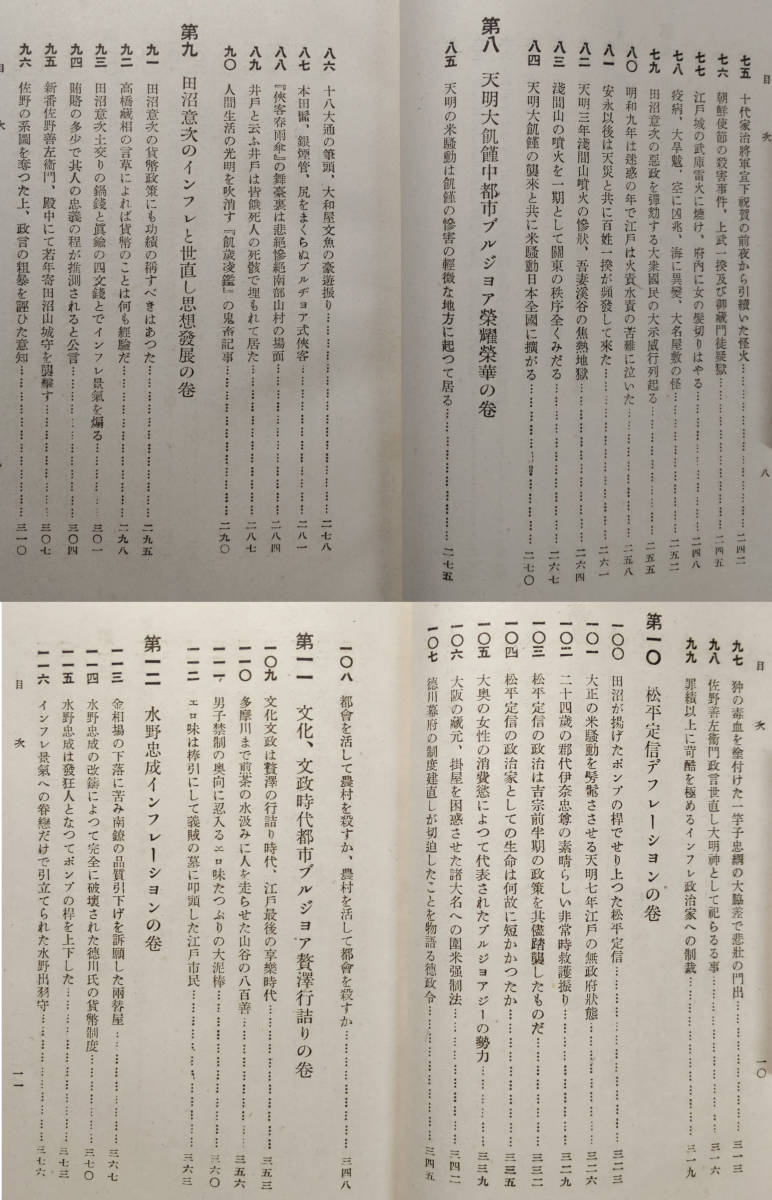 目次
八
七五 十代家治將軍宣下祝賀の前夜から引續いた怪火……二四二
七六 朝鮮使節の殺害事件、上武一揆及び御藏門徒疑獄……二四五
七七 江戸城の武庫雷火に燒け、府内に女の髮切りはやる……二四八
七八 疫病、大旱魃、空に凶兆、海に異變、大名屋敷の怪……二五二
七九 田沼意次の惡政を彈劾する大衆國民の大示威行列起る……二五五
八〇 明和九年は迷惑の年で江戸は火責水責の苦難に泣いた……二五八
八一 安永以後は天災と共に百姓一揆が頻發して來た……二六一
八二 天明三年淺間山噴火の慘狀、吾妻溪谷の焦熱地獄……二六四
八三 淺間山の噴火を一期として關東の秩序全くみだる……二六七
八四 天明大飢饉の襲來と共に米騷動日本全國に擴がる……二七〇
第八 天明大飢饉中都市ブルジョア榮耀榮華の卷
八五 天明の米騷動は飢饉の慘害の輕微な地方に起つて居る……二七五
八六 十八大通の筆頭、大和屋文魚の豪遊振り……二七八
八七 本田髷、銀煙管、尻をまくらぬブルヂョア式俠客……二八一
八八 『俠客春雨傘』の舞臺裏は悲絕慘絕南部山村の場面……二八四
八九 井戸と云ふ井戸は皆餓死人の死骸で埋もれて居た……二八七
九〇 人間生活の光明を吹消す『飢歲凌鑑』の鬼畜記事……二九〇
第九 田沼意次のインフレと世直し思想發展の卷
九一 田沼意次の貨幣政策にも功績の稱すべきはあつた……二九五
九二 高橋藏相の言草によれば貨幣のことは何も經驗だ……二九八
九三 田沼意次土交りの鍋錢と眞鍮の四文錢とでインフレ景氣を煽る……三〇一
九四 賄賂の多少で其人の忠義の程が推測されると公言……三〇四
九五 新番佐野善左衞門、殿中にて若年寄田沼山城守を襲擊す……三〇七
九六 佐野の系圖を奪つた上、政言の粗暴を誣ひた意知……三一〇
目次
目次
一〇
九七 狆の毒血を塗付けた一竿子忠綱の大脇差で悲壯の門出……三一三
九八 佐野善左衞門政言世直し大明神として祀らるる事……三一六
九九 罪績以上に苛酷を極めるインフレ政治家への制裁……三一九
第一〇 松平定信デフレーションの卷
一〇〇 田沼が揚げたポンプの桿でせり上つた松平定信……三二三
一〇一 大正の米騷動を髣髴させる天明七年江戸の無政府狀態……三二六
一〇二 二十四歲の郡代伊奈忠尊の素晴らしい非常時救護振り……三二九
一〇三 松平定信の政治は吉宗前半期の政策を其儘踏襲したものだ……三三二
一〇四 松平定信の政治家としての生命は何故に短かかつたか……三三五
一〇五 大奧の女性の消費慾によつて代表されたブルジョアジーの勢力……三三九
一〇六 大阪の藏元、掛屋を困惑させた諸大名への圍米强制法……三四二
一〇七 德川幕府の制度建直しが切迫したことを物語る德政令……三四五
一〇八 都會を活して農村を殺すか、農村を活して都會を殺すか……三四八
第一一 文化、文政時代都市ブルジョア贅澤行詰りの卷
一〇九 文化文政は贅澤の行詰り時代、江戸最後の享樂時代……三五三
一一〇 多摩川まで煎茶の水汲みに人を走らせた山谷の八百善……三五六
一一一 男子禁制の奧向に忍入るエロ味たつぷりの大泥棒……三六〇
一一二 エロ味は棒引にして義賊の墓に叩頭した江戸市民……三六三
第一二 水野忠成インフレーションの卷
一一三 金相場の下落に苦み南鐐の品質引下げを訴願した兩替屋……三六七
一一四 水野忠成の改鑄によつて完全に破壞された德川氏の貨幣制度……三七〇
一一五 水野忠成は發狂人となつてポンプの桿を上下した……三七三
一一六 インフレ景氣への眷戀だけで引立てられた水野出羽守……三七六
目次
一一